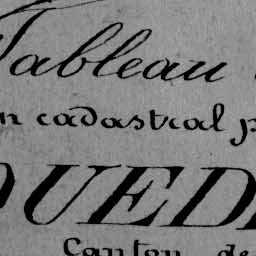 Tableau
n cadastral p
OUED
Canton de